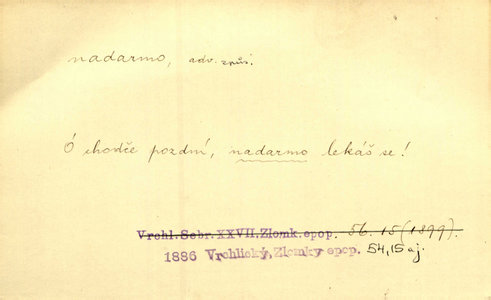 nadarmo, adv. způs.
Ó chodče pozdní, nadarmo lekáš se!
Vrchl. Sebr. XXVII. Zlomk. epop. 56. 15 (1899).
1886 Vrchlický, Zlomky epop. 54, 15 aj.